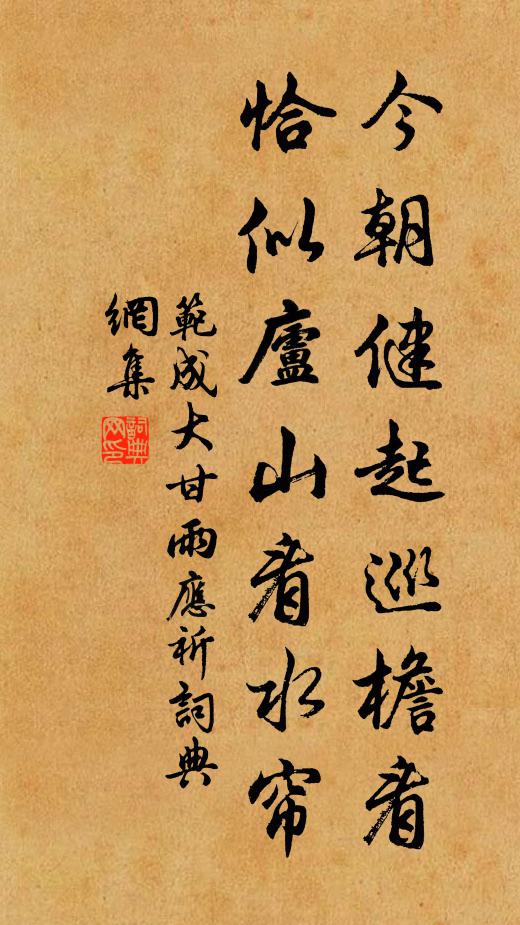 今朝健起巡檐看
恰似廬山看水帘
範成大甘雨應祈詞典
網集
詞典网印